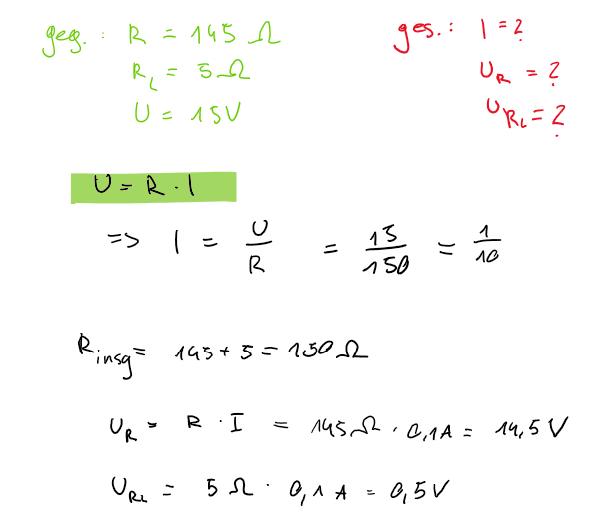 geg.: R = 145 Ω
ges.: I = ?
R_L = 5 Ω
U_R = ?
U = 15V
U_{R_L} = ?
U = R · I
=> I = U/R = 15/150 = 1/10
R_insg = 145 + 5 = 150 Ω
U_R = R · I = 145 Ω · 0,1 A = 14,5 V
U_{RL} = 5 Ω · 0,1 A = 0,5 V